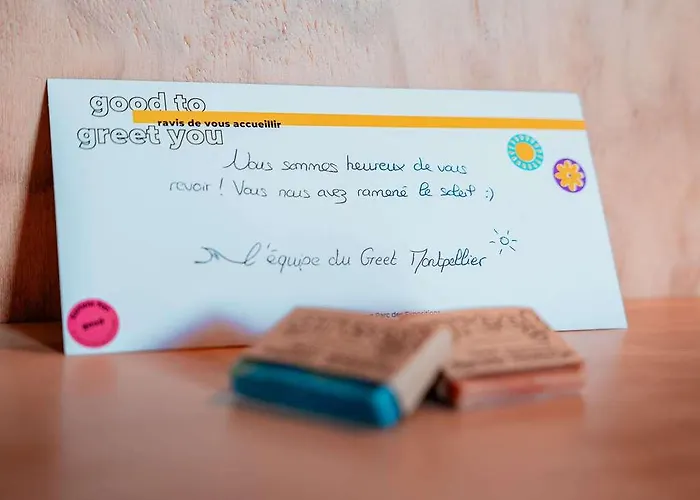 good to
ravis de vous accueillir
greet you
Nous sommes heureux de vous
revoir ! Vous nous avez ramené le soleil :)
L'équipe du Greet Montpellier
Parc des Expositions
good